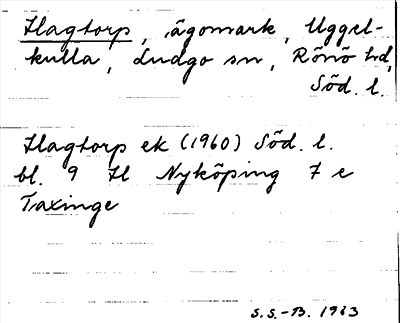 Hagtorp, ägomark, Uggel-
kulla, Ludgo sn, Rönö hd,
Söd. l.
Hagtorp ek (1960) Söd. l.
bl. 9 H Nyköping 7 e
Taxinge
S.S.-B. 1963